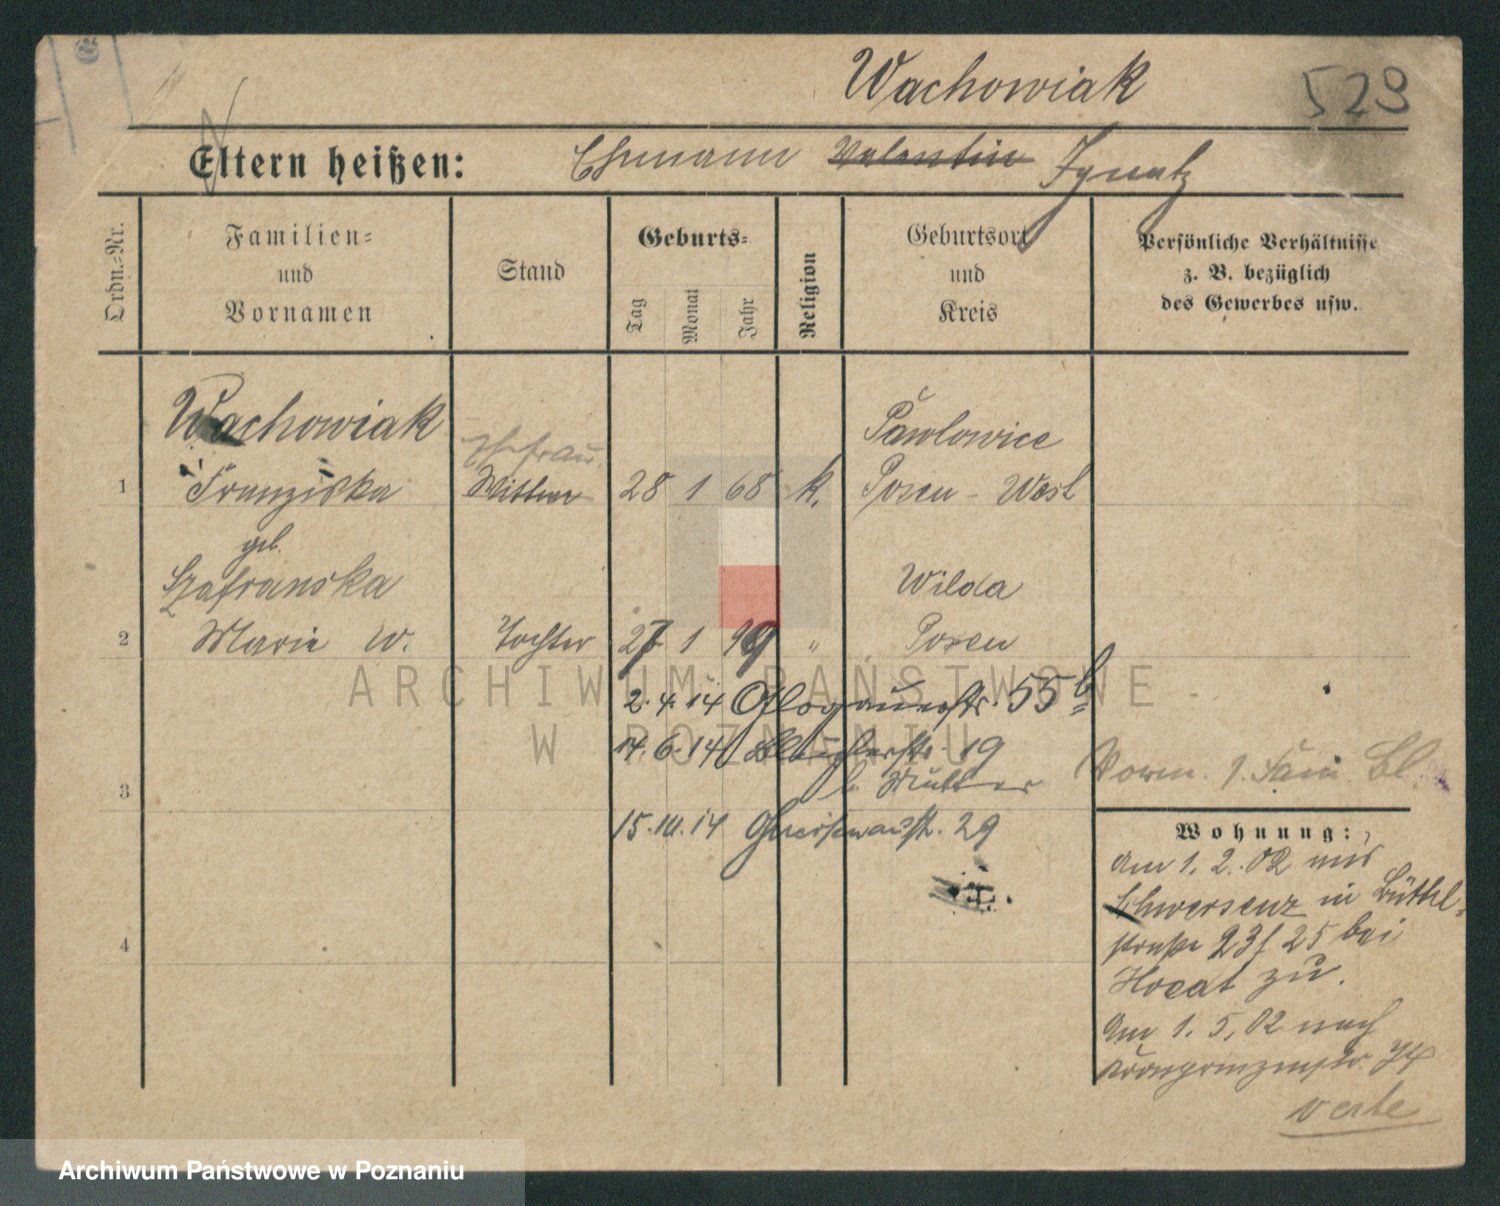 Wachowiak
529
Eltern heißen: Ehmann Valentin Ignatz
Ordn.-Nr.
Familien- und Vornamen
Stand
Geburts-
Tag
Monat
Jahr
Religion
Geburtsort und Kreis
Persönliche Verhältnisse
z. B. bezüglich
des Gewerbes usw.
Wachowiak
Ehefrau
Pawlowice
1 Franziska Wittwe 28 1 68 k. Posen - West
geb.
Szafranska
Wilda
2 Marie W. Tochter 27 1 99 " Posen
2.4.14 Glogauerstr. 55b
14.6.14 19
b. Mutter
3
15.10.14 Gneisenaustr. 29
4
Vorm. 1 Fam. Bl
Wohnung:
Am 1.2.02 aus
Schwersenz in Büttel-
straße 23/25 bei
zu.
Am 1.5.02 nach
Kronprinzenstr. 74
verte
ARCHIWUM PAŃSTWOWE
W POZNANIU
Archiwum Państwowe w Poznaniu